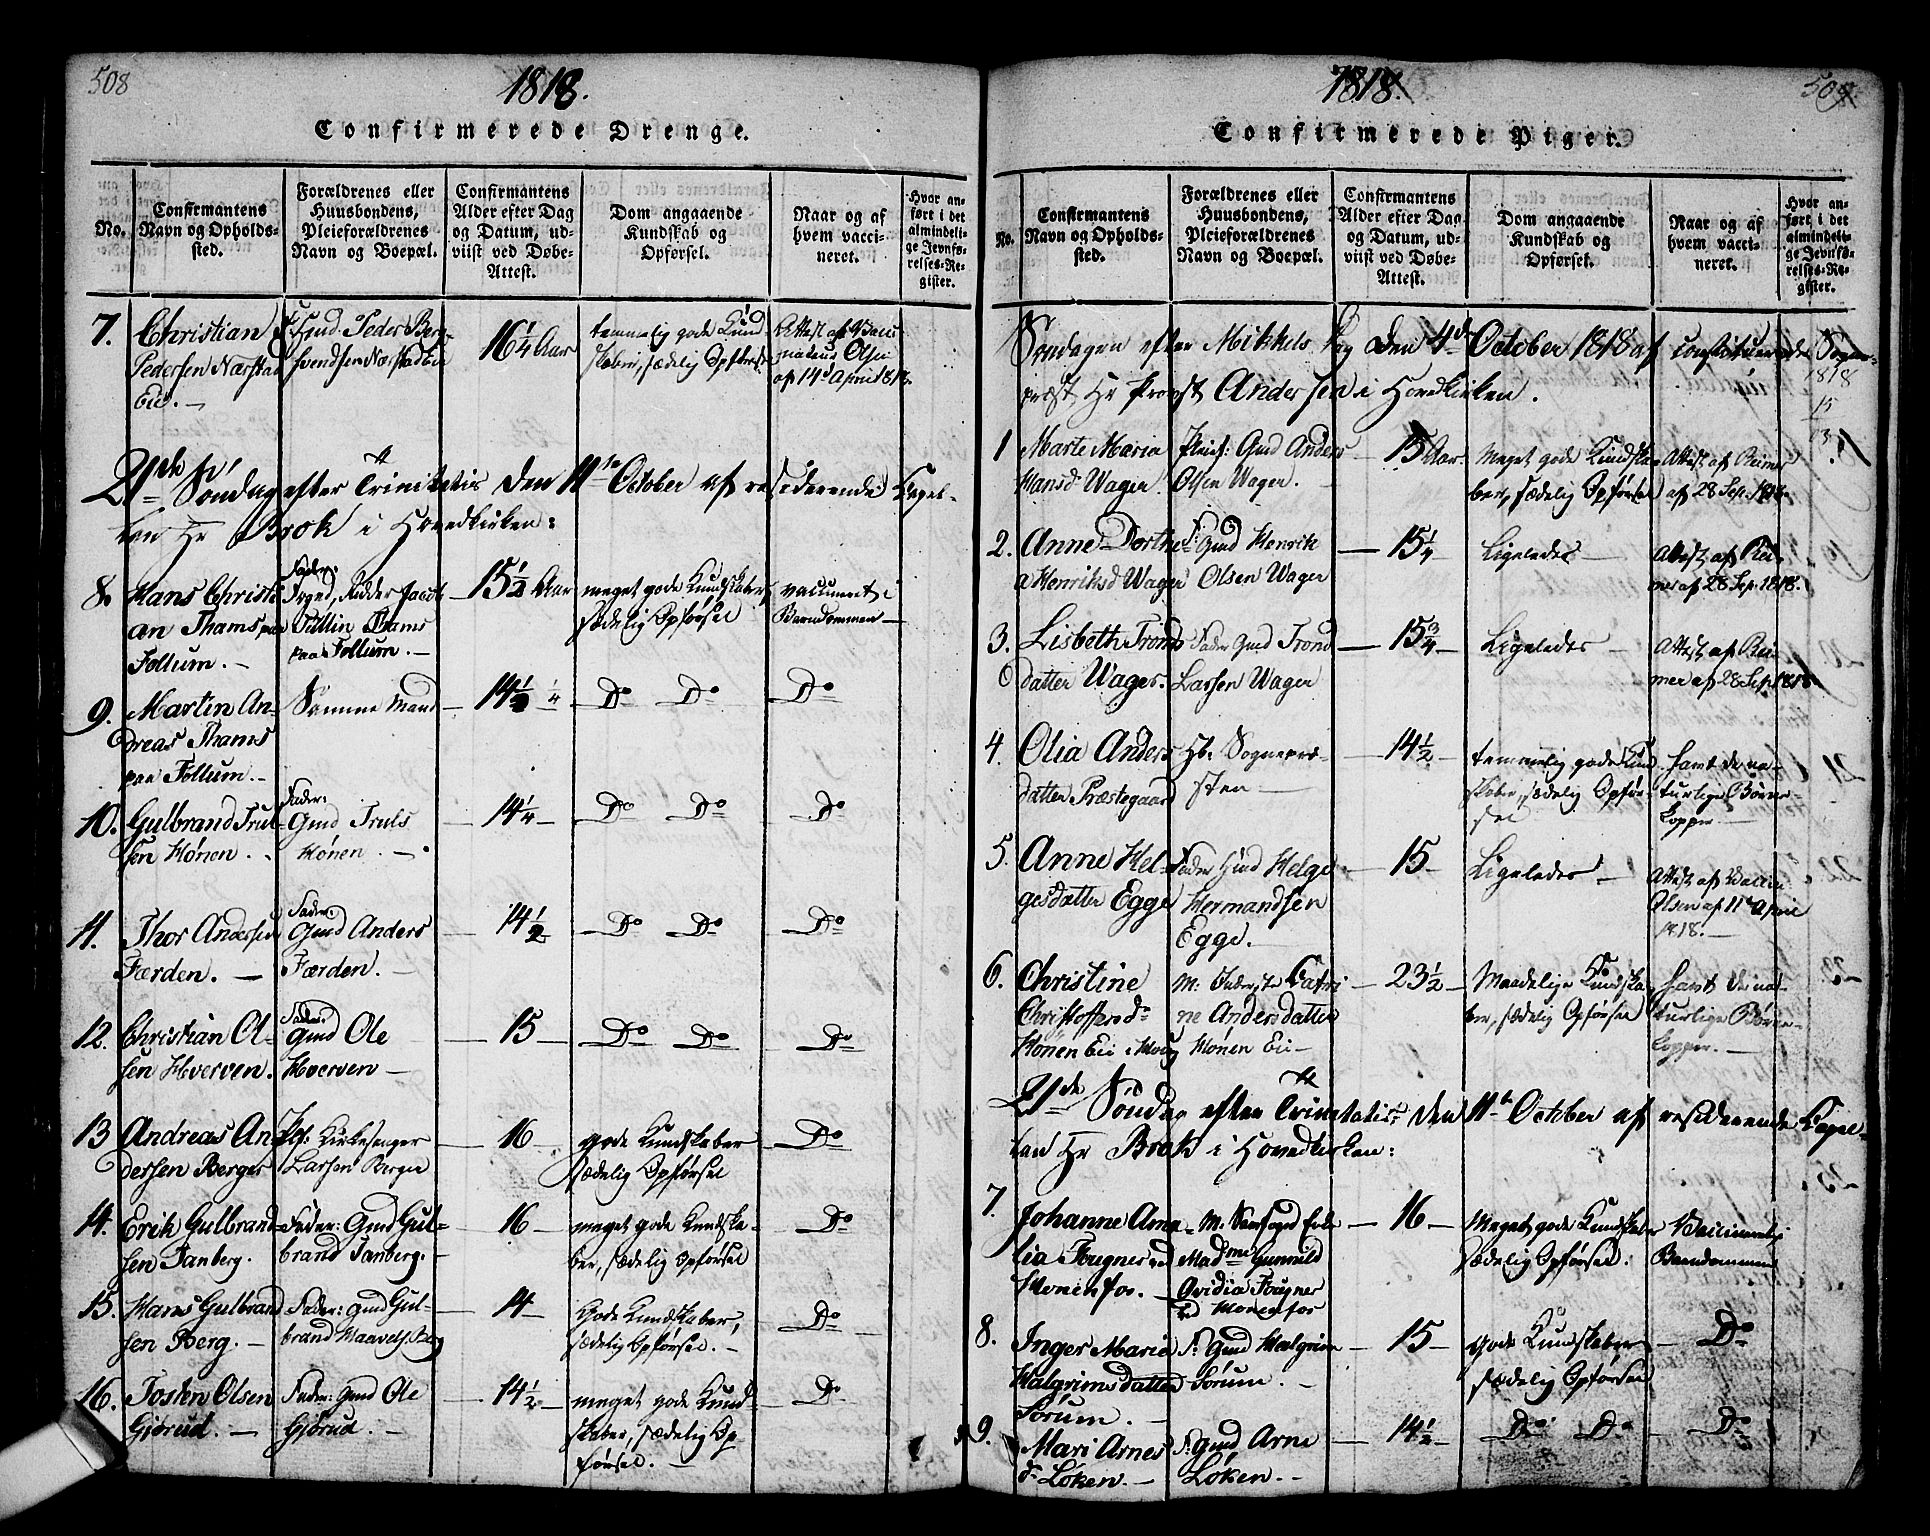 508
1818.
Confirmerede Drenge.
No.
Confirmantens Navn og Opholdssted.
Forældrenes eller Huusbondens, Pleieforældrenes Navn og Boepæl.
Confirmantens Alder efter Dag og Datum, udviist ved Døbe-Attest.
Dom angaaende Kundskab og Opførsel.
Naar og af hvem vaccineret.
Hvor anført i det almindelige Jevnførelses-Register.
7. Christian Pedersen Nærstad Eie. Hmd: Peder Berg- 16 1/4 Aar temmelig gode Kundskaber, sædelig Opførsel Attest af Olsen af 14d April 1818.
21de Søndag efter Trinitatis den 11te October af residerende Capel-
lan Hr Brok i Hovedkirken:
8. Hans Christian Thams paa Follum. Fader: Foged, Ridder Jacob Tullin Thams paa Follum. 15 1/2 Aar meget gode Kundskaber, sædelig Opførsel vaccineret i Barndommen
9. Martin Andreas Thams paa Follum. Samme Mand 14 1/2 Do Do Do
10. Gulbrand Trulsen Hønen. Fader: Gmd Truls Hønen. 14 1/4 Do Do Do
11. Thor Andersen Færden. Fader: Gmd Anders Færden. 14 1/2 Do Do Do
12. Christian Olsen Hverven. Fader: Gmd Ole Hverven 15 Do Do Do
13 Andreas Andersen Berger Plf: Kirkesanger Larsen Berger 16 gode Kundskaber sædelig Opførsel Do
14. Erik Gulbrandsen Tanberg. Fader: Gmd Gulbrand Tanberg. 16 meget gode Kundskaber, sædelig Opførsel Do
15. Hans Gulbrandsen Berg. Fader: Gmd Gulbrand 14 gode Kundskaber, sædelig Opførsel. Do
16. Josten Olsen Gjørud. Fader: Gmd Ole Gjørud. 14 1/2 meget gode Kundskaber, sædelig Opførsel. Do
1818.
509.
Confirmerede Piger.
No.
Confirmantens Navn og Opholdssted.
Forældrenes eller Huusbondens, Pleieforældrenes Navn og Boepæl.
Confirmantens Alder efter Dag og Datum, udviist ved Døbe-Attest.
Dom angaaende Kundskab og Opførsel.
Naar og af hvem vaccineret.
Hvor anført i det almindelige Jevnførelses-Register.
Søndagen efter Mikkels Dag den 4de October 1818 af constituerede Sogne-
præst Hr Provst Andersen i Hovedkirken.
1818
15
1 Marte Maria Hansd Wager. Pleief: Gmd Anders Olsen Wager. 15 Aar. Meget gode Kundskaber, sædelig Opførsel Attest af Reimer af 28 Sep. 1818.
2. Anne Dorthea Henriksd Wager F: Gmd Henrik Olsen Wager 15 1/4 Ligeledes Attest af Reimer af 28 Sep. 1818.
3. Lisbeth Tronddatter Wager. Fader Gmd Trond Larsen Wager 15 3/4 Ligeledes Attest af Reimer af 28 Sep. 1818
4. Olia Andersdatter Præstegaard Hb: Sognepresten 14 1/2 temmelig gode Kundskaber, sædelig Opførsel havt de naturlige Børne-Kopper.
5. Anne Helgesdatter Egge Fader Gmd Helge Hermandsen Egge. 15 Ligeledes Attest af Olsen af 11te April 1818.
6. Christine Christoffersd. Hønen Eie M: Catrine Andersdatter Hønen Eie 23 1/2 Maadelige Kundskaber, sædelig Opførsel havt de naturlige Børne-Kopper.
21de Søndag efter Trinitatis den 11te October af residerende Capel-
lan Hr Brok i Hovedkirken:
7. Johanne Amalia Fougner ved Hønenfos. M: Madme Gunnild Ovidia Fougner ved Hønenfos 16 Meget gode Kundskaber sædelig Opførsel. Vaccineret i Barndommen
8. Inger Marie Halgrimsdatter Sørum. F: Gmd Halgrim Sørum. 15 gode Kundskaber sædelig Opførsel Do
9. Mari Arnesd. Løken. F: Gmd Arne Løken. 14 1/2 Do Do Do